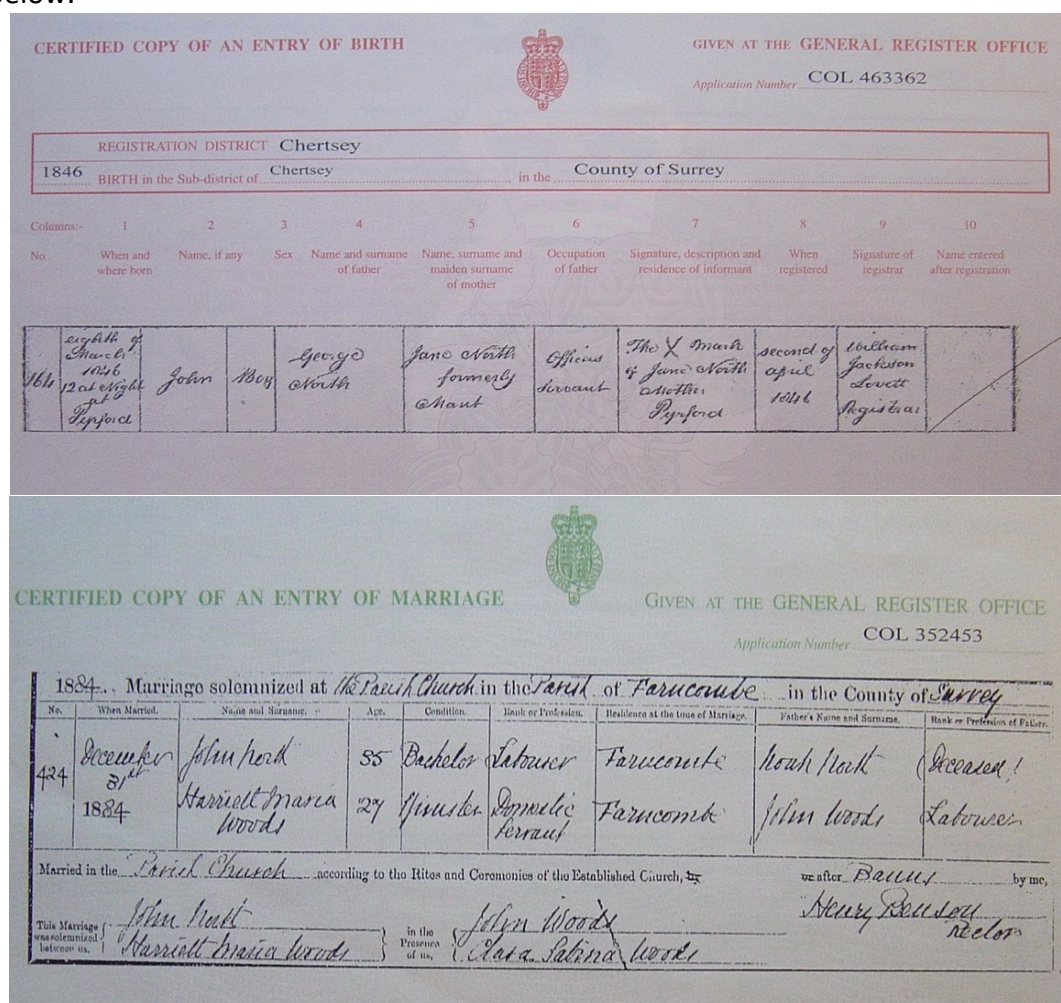 below:
CERTIFIED COPY OF AN ENTRY OF BIRTH
GIVEN AT THE GENERAL REGISTER OFFICE
Application Number COL 463362
REGISTRATION DISTRICT Chertsey
1846 BIRTH in the Sub-district of Chertsey in the County of Surrey
Columns:- 1 2 3 4 5 6 7 8 9 10
No. When and where born
Name, if any
Sex
Name and surname of father
Name, surname and maiden surname of mother
Occupation of father
Signature, description and residence of informant
When registered
Signature of registrar
Name entered after registration
164
eighth of
March
1846
12 at Night
at
Pyrford
John
Boy
George
North
Jane North
formerly
Mant
Officers
Servant
The X Mark
of Jane North
Mother
Pyrford
second of
april
1846
William
Jackson
Lovett
Registrar
CERTIFIED COPY OF AN ENTRY OF MARRIAGE
GIVEN AT THE GENERAL REGISTER OFFICE
Application Number COL 352453
1884. Marriage solemnized at the Parish Church in the Parish of Farncombe in the County of Surrey
No. When Married. Name and Surname. Age. Condition. Rank or Profession. Residence at the time of Marriage. Father's Name and Surname. Rank or Profession of Father.
424
December
31st
1884
John North 35 Bachelor Labourer Farncombe Noah North (Deceased)
Harriett Maria
Woods
27 Spinster Domestic
Servant
Farncombe John Woods Labourer
Married in the Parish Church according to the Rites and Ceremonies of the Established Church, or or after Banns by me,
Henry Benson
Rector
This Marriage
was solemnized
between us,
John North
Harriett Maria Woods
in the
Presence
of us,
John Woods
Clara Sabina Woods